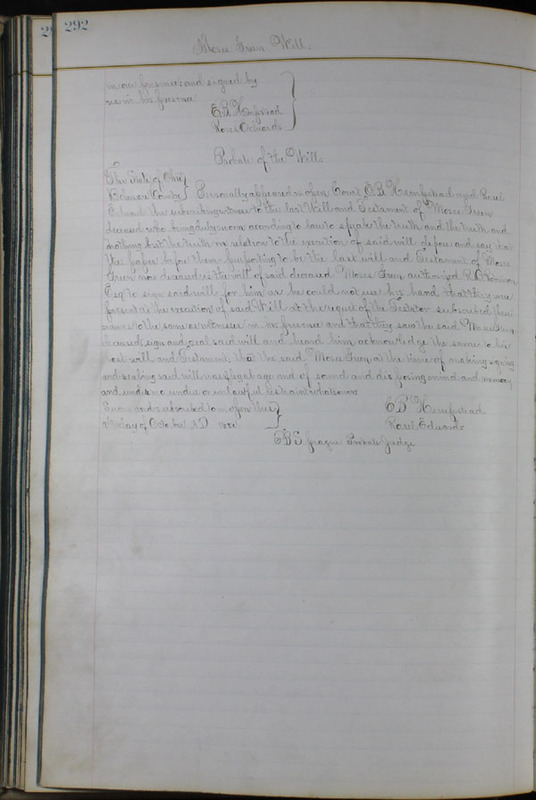 292
Moses Green Will.
in our presence and signed by
us in his presence
E B Hempstead
Rosel Edwards
Probate of the Will.
The State of Ohio
County Personally appeared in open Court E. B Hempstead and Rosel
Edwards the subscribing witnesses to the last Will and Testament of Moses Green
deceased who being duly sworn according to law to speak the truth and the truth and
nothing but the truth in relation to the execution of said will depose and say that
the paper before them purporting to be the last will and Testament of Moses
Green now deceased is the will of said deceased Moses Green authorized
Esq to sign said will for him as he could not use his hand that they were
present at the execution of said Will at the request of the Testator subscribed their
names to the same as witnesses in his presence and that they saw the said Moses Green
deceased sign and seal said will and heard him acknowledge the same to be his
last will and Testament, that the said Moses Green at the time of making signing
and sealing said will was of legal age and of sound and disposing mind and memory
and under no undue or unlawful restraint whatsoever
Sworn and subscribed to in open this
day of October AD
E B Hempstead
Rosel Edwards
Probate Judge